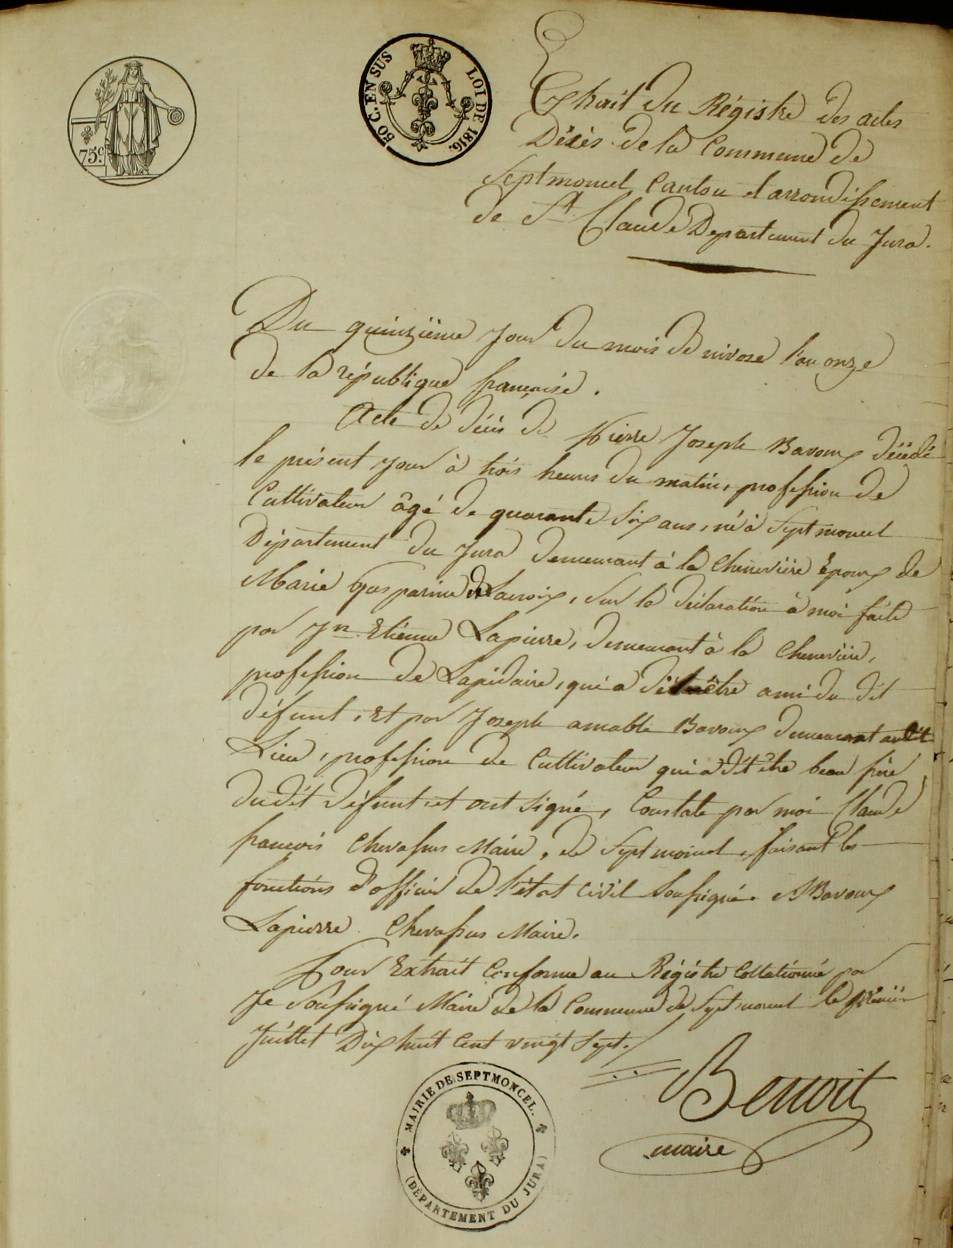 75 c.
50 C. EN SUS LOI DE 1816.
Extrait du Régistre des actes
Décès de la Commune de
Septmoncel, Canton et arrondissement
de St Claude Departement du Jura.
Du quinzième jour du mois de nivose l'an onze
de la république française.
Acte de décès de Pierre Joseph Bavoux décédé
le présent jour à trois heures du matin, profession de
Cultivateur âgé de quarante six ans, né à Septmoncel
Département du Jura demeurant à la Chenevière Epoux de
Marie Gasparine Delacroix, sur la déclaration à moi faite
par Jn Etienne Lapierre, demeurant à la Chenevière,
profession de Lapidaire, qui a dit être ami du dit
défunt, Et par Joseph amable Bavoux demeurant audit
Lieu, profession de Cultivateur qui a dit être beau père
dudit défunt et ont signé, Constaté par moi Claude
françois Chevassus Maire, de Septmoncel, faisant les
fonctions d'officier de l'état civil soussigné. Bavoux
Lapierre Chevassus Maire.
Pour Extrait Conforme au Régistre Collationné par
Je soussigné Maire de la Commune de Septmoncel le prémier
Juillet Dix huit cent vingt Sept.
Benoit
maire
MAIRIE DE SEPTMONCEL.
(DÉPARTEMENT DU JURA)